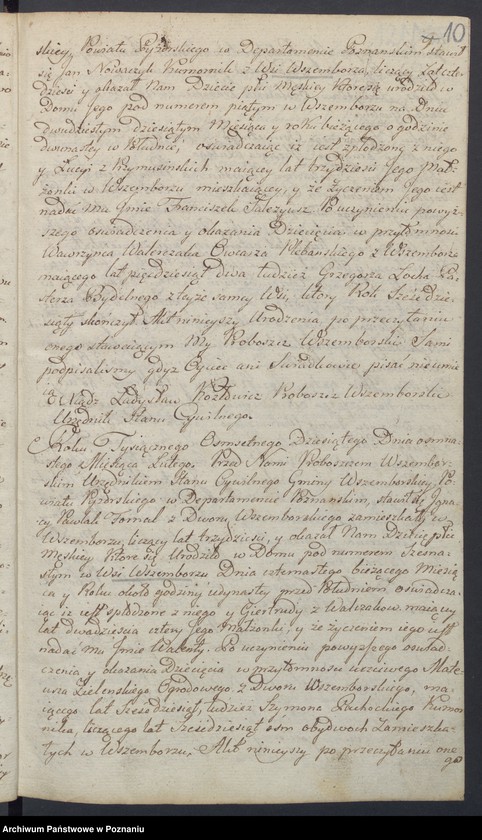 10
skiey Powiatu Pyzdrskiego w Departamencie Poznanskim stawił
się Jan Nowaczyk Kumornik z Wsi Wszemborza, liczący Lat czter
dziesci y okazał Nam Dziecie płci Męskiey Ktore się urodziło w
Domu Jego pod numerem piątym w Wszemborzu na Dniu
dwudziestym dziesiątym Miesiąca y roku bieżącego o godzinie
dwunastey w Południe, oswiadczaiąc iż iest spłodzone z niego
y Lucyi z Krymusinskich maiącey lat trzydziesci Jego Mał-
żonki w Wszemborzu mieszkaiącey, y że życzeniem Jego iest
nadać mu Jmie Franciszek Salezyusz Po uczynieniu powyż-
szego oswiadczenia y okazania Dziecięcia w przytomnosci
Wawrzynca Walerczaka Owczarza Plebanskiego z Wszemborza
maiącego lat pięcdziesiąt dwa tudzież Grzegorza Locha Pa-
sterza Bydelnego z teyże samey Wsi, ktory Rok Szescdzie-
siąty skończył. Akt ninieyszy Urodzenia po przeczytaniu
onego stawaiącym My Proboszcz Wszemborski Sami
podpisalismy gdyż Oyciec ani Swiadkowie pisać nieumie
ią Xiądz Ladysław Kozłowicz Proboszcz Wszemborski
Urzędnik Stanu Cywilnego.
Roku Tysiącznego Osmsetnego Dziesiątego Dnia osmna-
stego Miesiąca Lutego. Przed Nami Proboszczem Wszembor-
skim Urzędnikiem Stanu Cywilnego Gminy Wszemborskiey, Po-
wiatu Pyzdrskiego w Departamencie Poznanskim, stawił się Igna-
cy Pawlak Fornal z Dworu Wszemborskiego zamieszkały w
Wszemborzu, liczący lat trzydziesci, y okazał Nam Dziecię płci
Męskiey Ktore się Urodziło w Domu pod numerem Szesna-
stym w Wsi Wszemborzu Dnia czternastego bieżącego Miesią
ca y Roku około godziny iedynastey przed Południem, oswiadcza-
iąc iż iest spłodzone z niego y Giertrudy z Walczakow, maiącey
lat dwadziescia cztery Jego Małżonki, y że życzeniem iego iest
nadać mu Jmie Walenty. Po uczynieniu powyższego oswiad-
czenia y okazania Dziecięcia w przytomnosci uczciwego Mate-
usza Zielenskiego Ogrodowego z Dworu Wszemborskiego, ma-
iącego lat Szescdziesiąt tudzież Szymona Kumor
nika, liczącego lat Szescdziesiąt osm obydwoch Zamieszka-
łych w Wszemborzu, Akt ninieyszy po przeczytaniu one
go
Archiwum Państwowe w Poznaniu